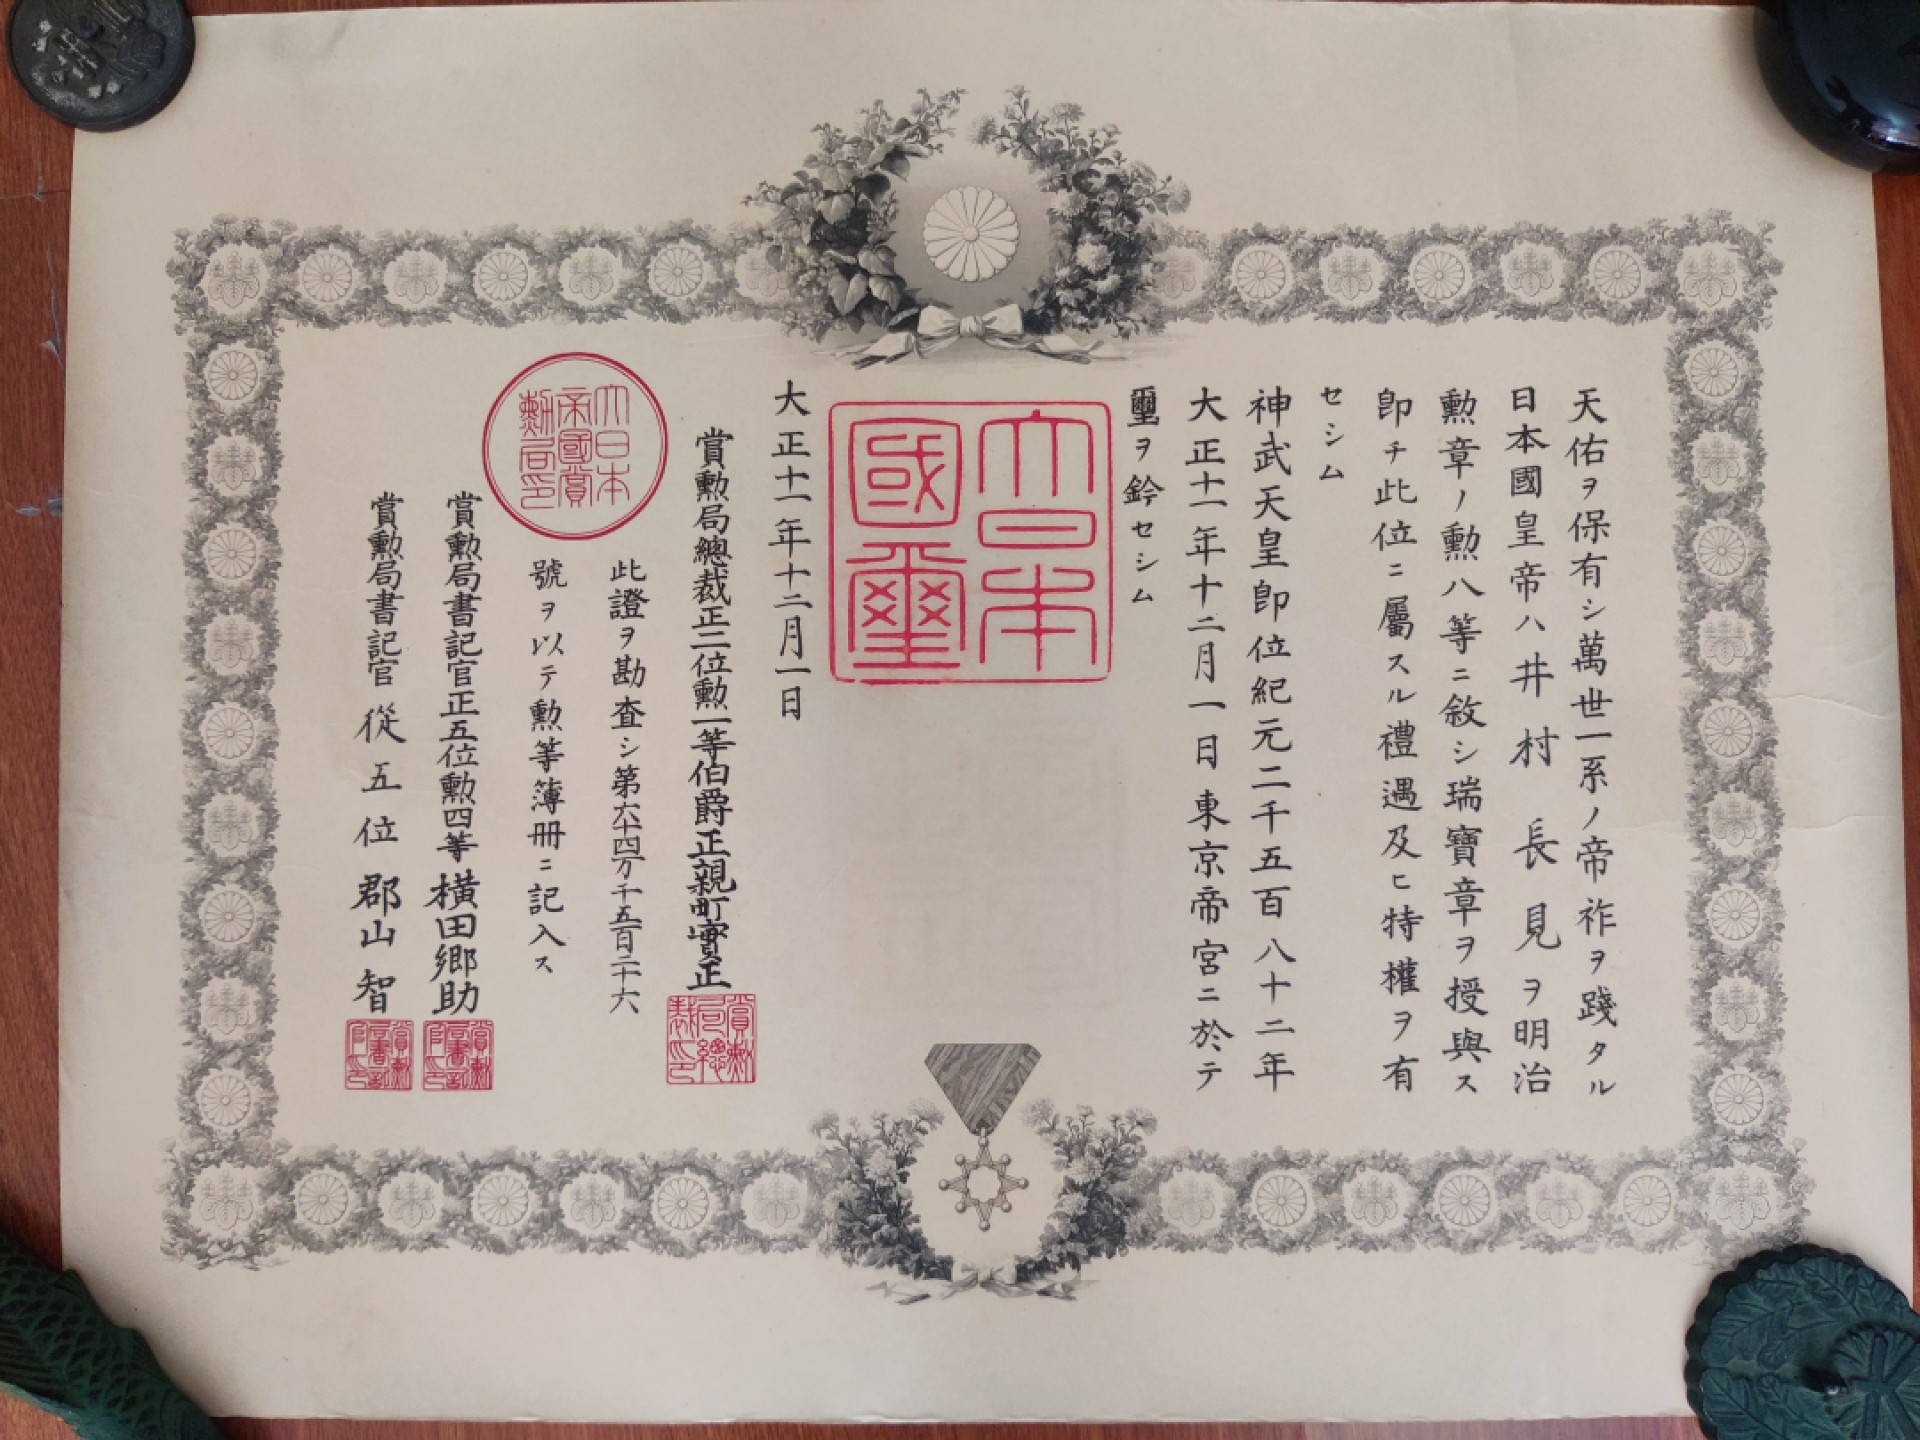 天佑ヲ保有シ萬世一系ノ帝祚ヲ踐タル
日本國皇帝ハ井村長見ヲ明治
勲章ノ勲八等ニ敘シ瑞寶章ヲ授與ス
卽チ此位ニ屬スル禮遇及ヒ特權ヲ有
セシム
神武天皇卽位紀元二千五百八十二年
大正十一年十二月一日東京帝宮ニ於テ
璽ヲ鈐セシム
大日本
國璽
大正十一年十二月一日
賞勲局總裁正二位勲一等伯爵正親町實正
賞勲局總裁印
大日本帝國賞勲局印
此證ヲ勘査シ第六十四万千五百二十六
號ヲ以テ勲等簿冊ニ記入ス
賞勲局書記官正五位勲四等横田郷助
賞勲局書記官印
賞勲局書記官從五位郡山智
賞勲局書記官印